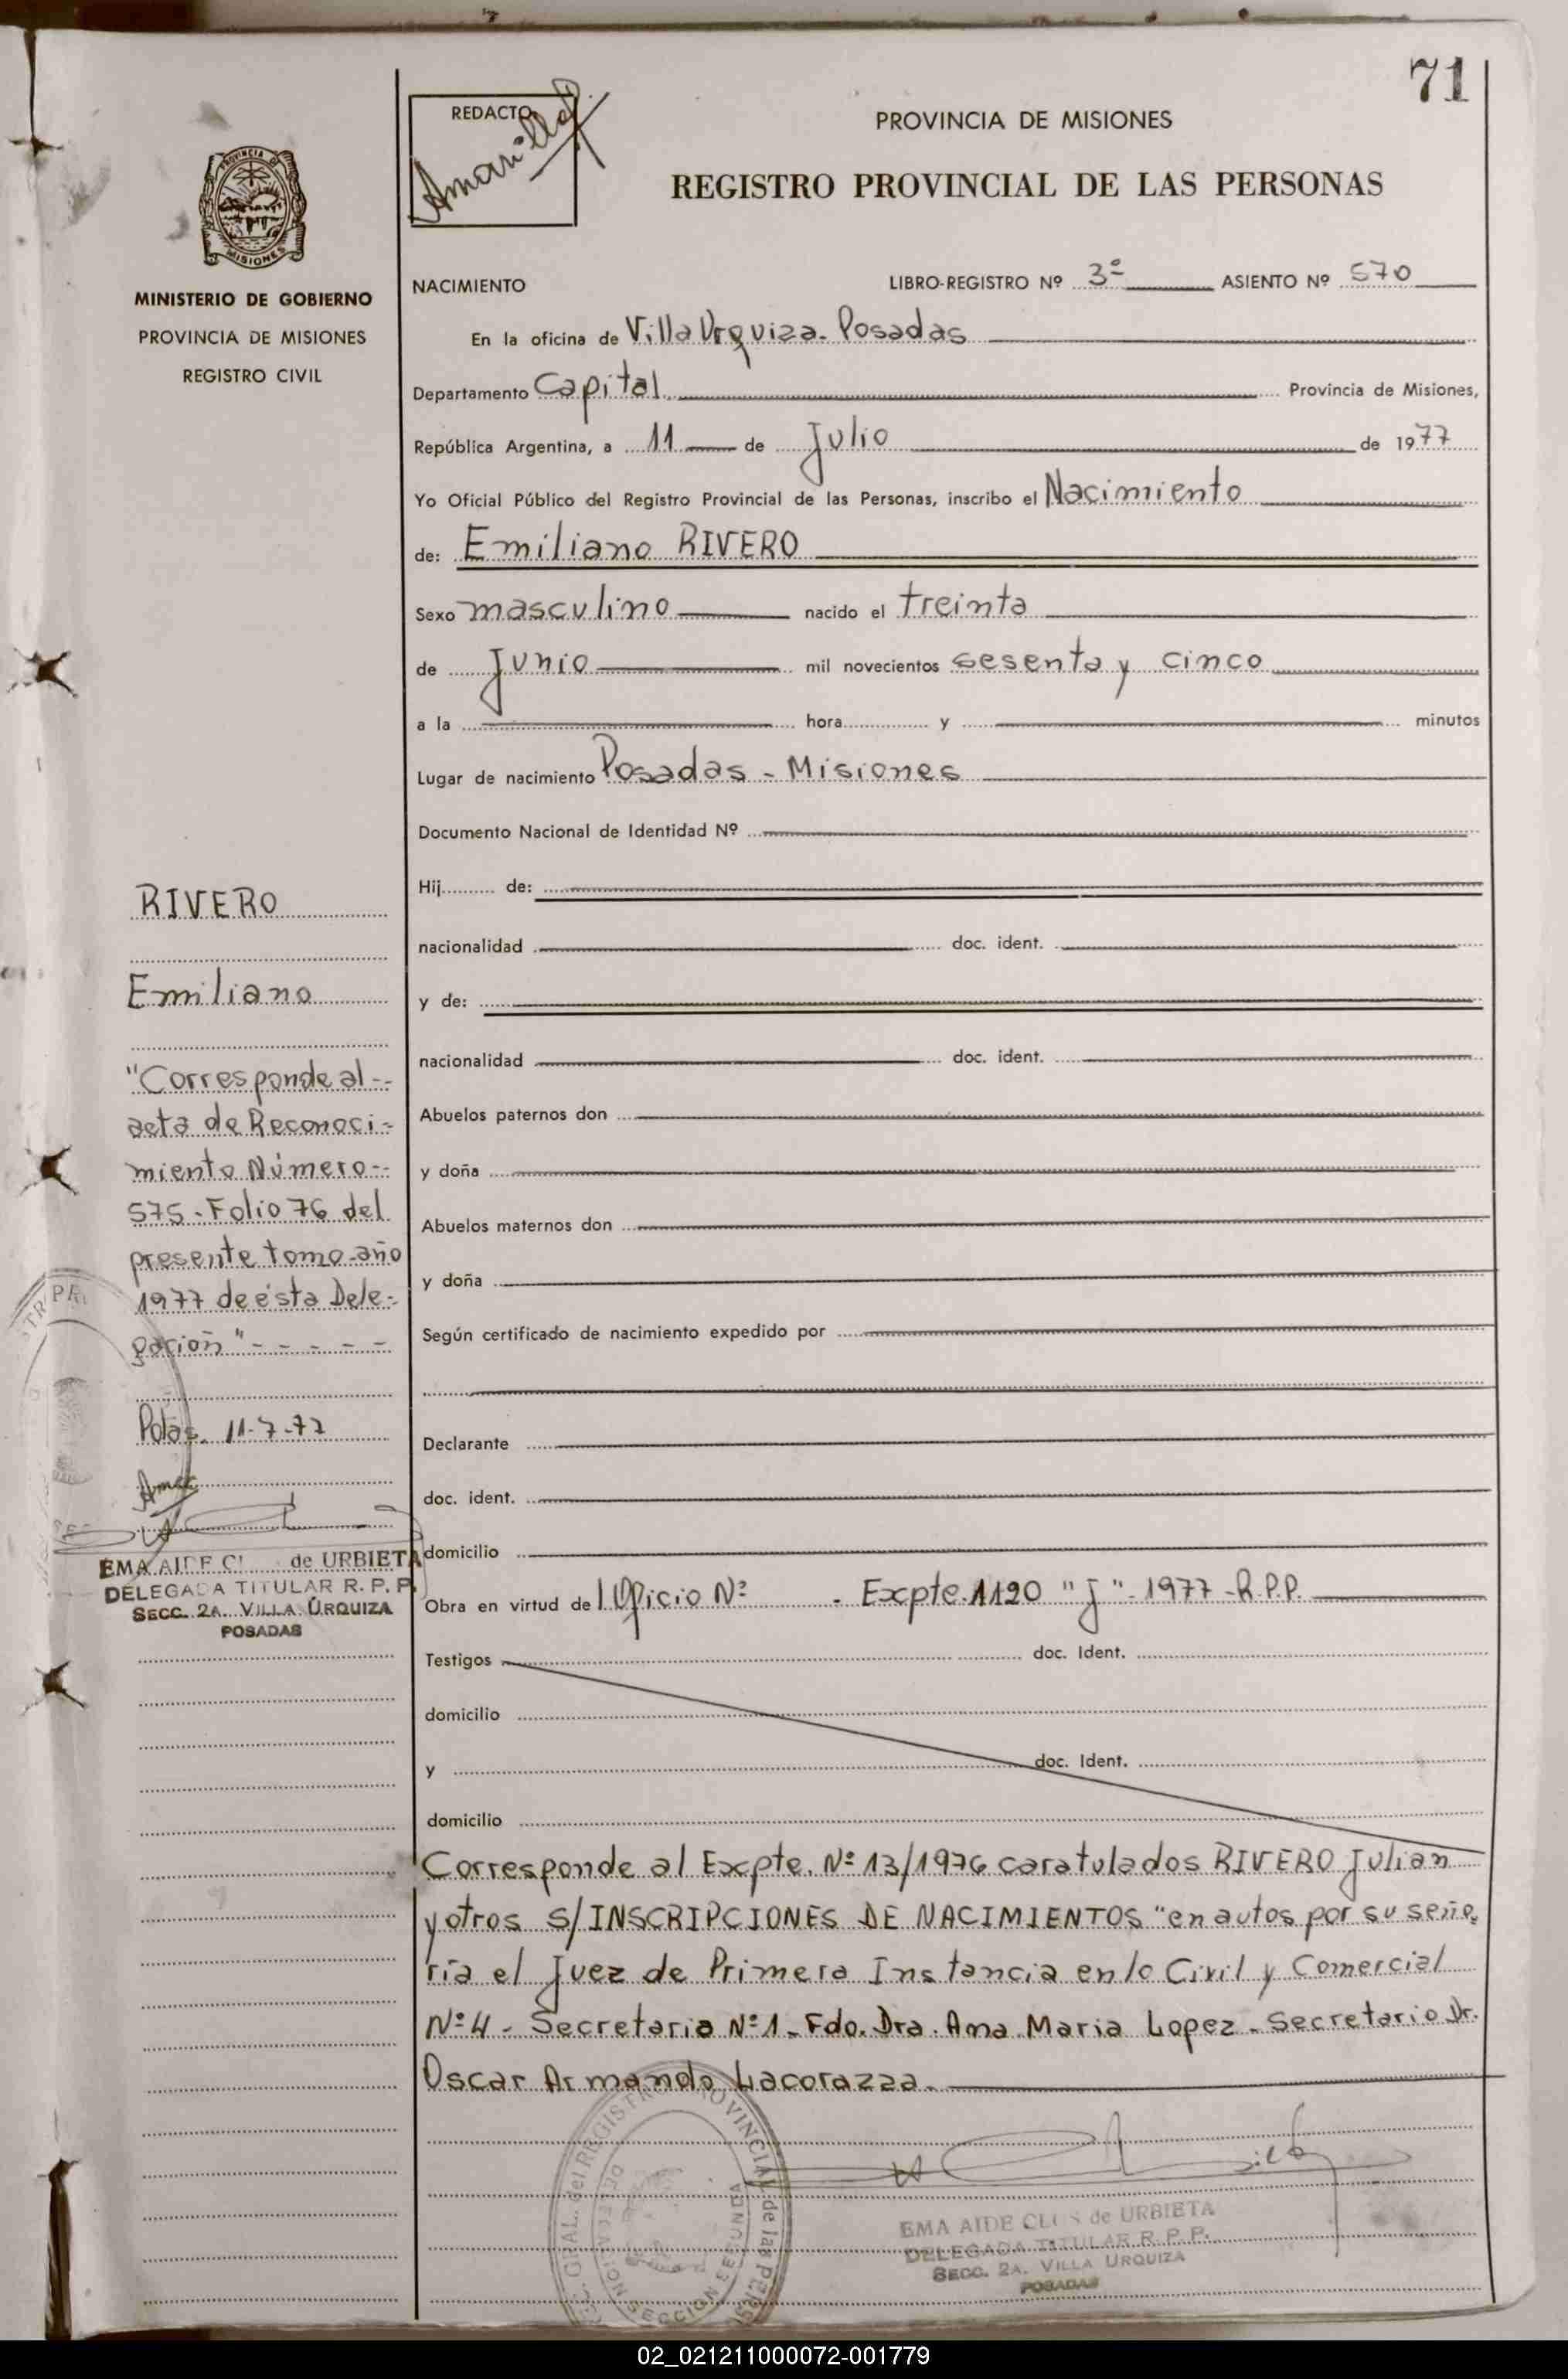 71
REDACTO
Amarilla
PROVINCIA DE MISIONES
REGISTRO PROVINCIAL DE LAS PERSONAS
PROVINCIA DE MISIONES
MINISTERIO DE GOBIERNO
PROVINCIA DE MISIONES
REGISTRO CIVIL
NACIMIENTO LIBRO-REGISTRO Nº 3º ASIENTO Nº 570
En la oficina de Villa Urquiza - Posadas
Departamento Capital Provincia de Misiones,
República Argentina, a 11 de Julio de 1977
Yo Oficial Público del Registro Provincial de las Personas, inscribo el Nacimiento
de: Emiliano RIVERO
Sexo masculino nacido el treinta
de Junio mil novecientos sesenta y cinco
a la hora y minutos
Lugar de nacimiento Posadas - Misiones
Documento Nacional de Identidad Nº
Hij de:
nacionalidad doc. ident.
y de:
nacionalidad doc. ident.
Abuelos paternos don
y doña
Abuelos maternos don
y doña
Según certificado de nacimiento expedido por
Declarante
doc. ident.
domicilio
Obra en virtud del Oficio Nº - Expte. 1120 "J" - 1977 - R.P.P.
Testigos doc. Ident.
domicilio
y doc. Ident.
domicilio
Corresponde al Expte. Nº 13/1976 caratulados RIVERO Julian
y otros S/INSCRIPCIONES DE NACIMIENTOS "en autos por su seño-
ría el Juez de Primera Instancia en lo Civil y Comercial
Nº 4 - Secretaria Nº 1 - Fdo. Dra. Ana Maria Lopez - Secretario Dr.
Oscar Armando Lacorazza.
RIVERO
Emiliano
"Corresponde al -
acta de Reconoci-
miento Número -
575 - Folio 76 del
presente tomo - año
1977 de ésta Dele-
gación" - - - - -
Pdas. 11-7-77
EMA AIDE de URBIETA
DELEGADA TITULAR R. P. P.
SECC. 2A. VILLA URQUIZA
POSADAS
GRAL. del REGISTRO PROVINCIAL de las
DELEGACION SECCION SEGUNDA
EMA AIDE de URBIETA
DELEGADA TITULAR R. P. P.
SECC. 2A. VILLA URQUIZA
POSADAS
02_021211000072-001779